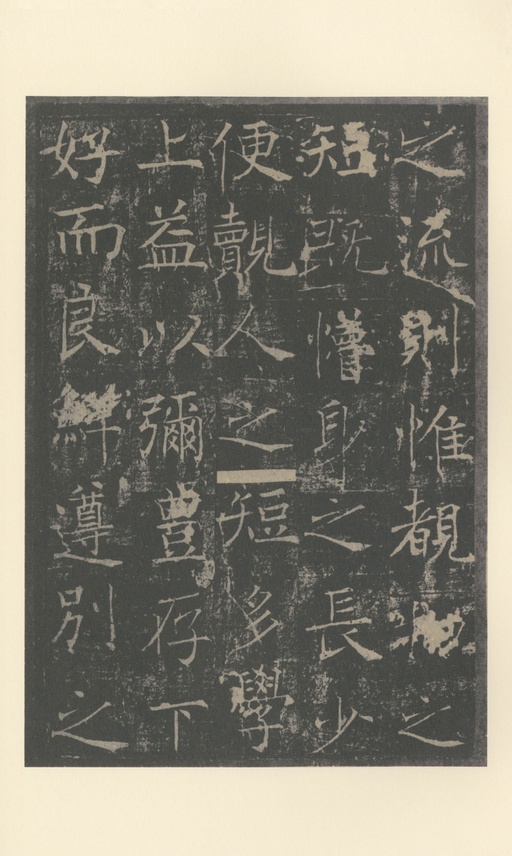 之流則惟覩物之
短既懵身之長少
便覿人之短多學
上益以彌豊存下
好而良鮮遵別之